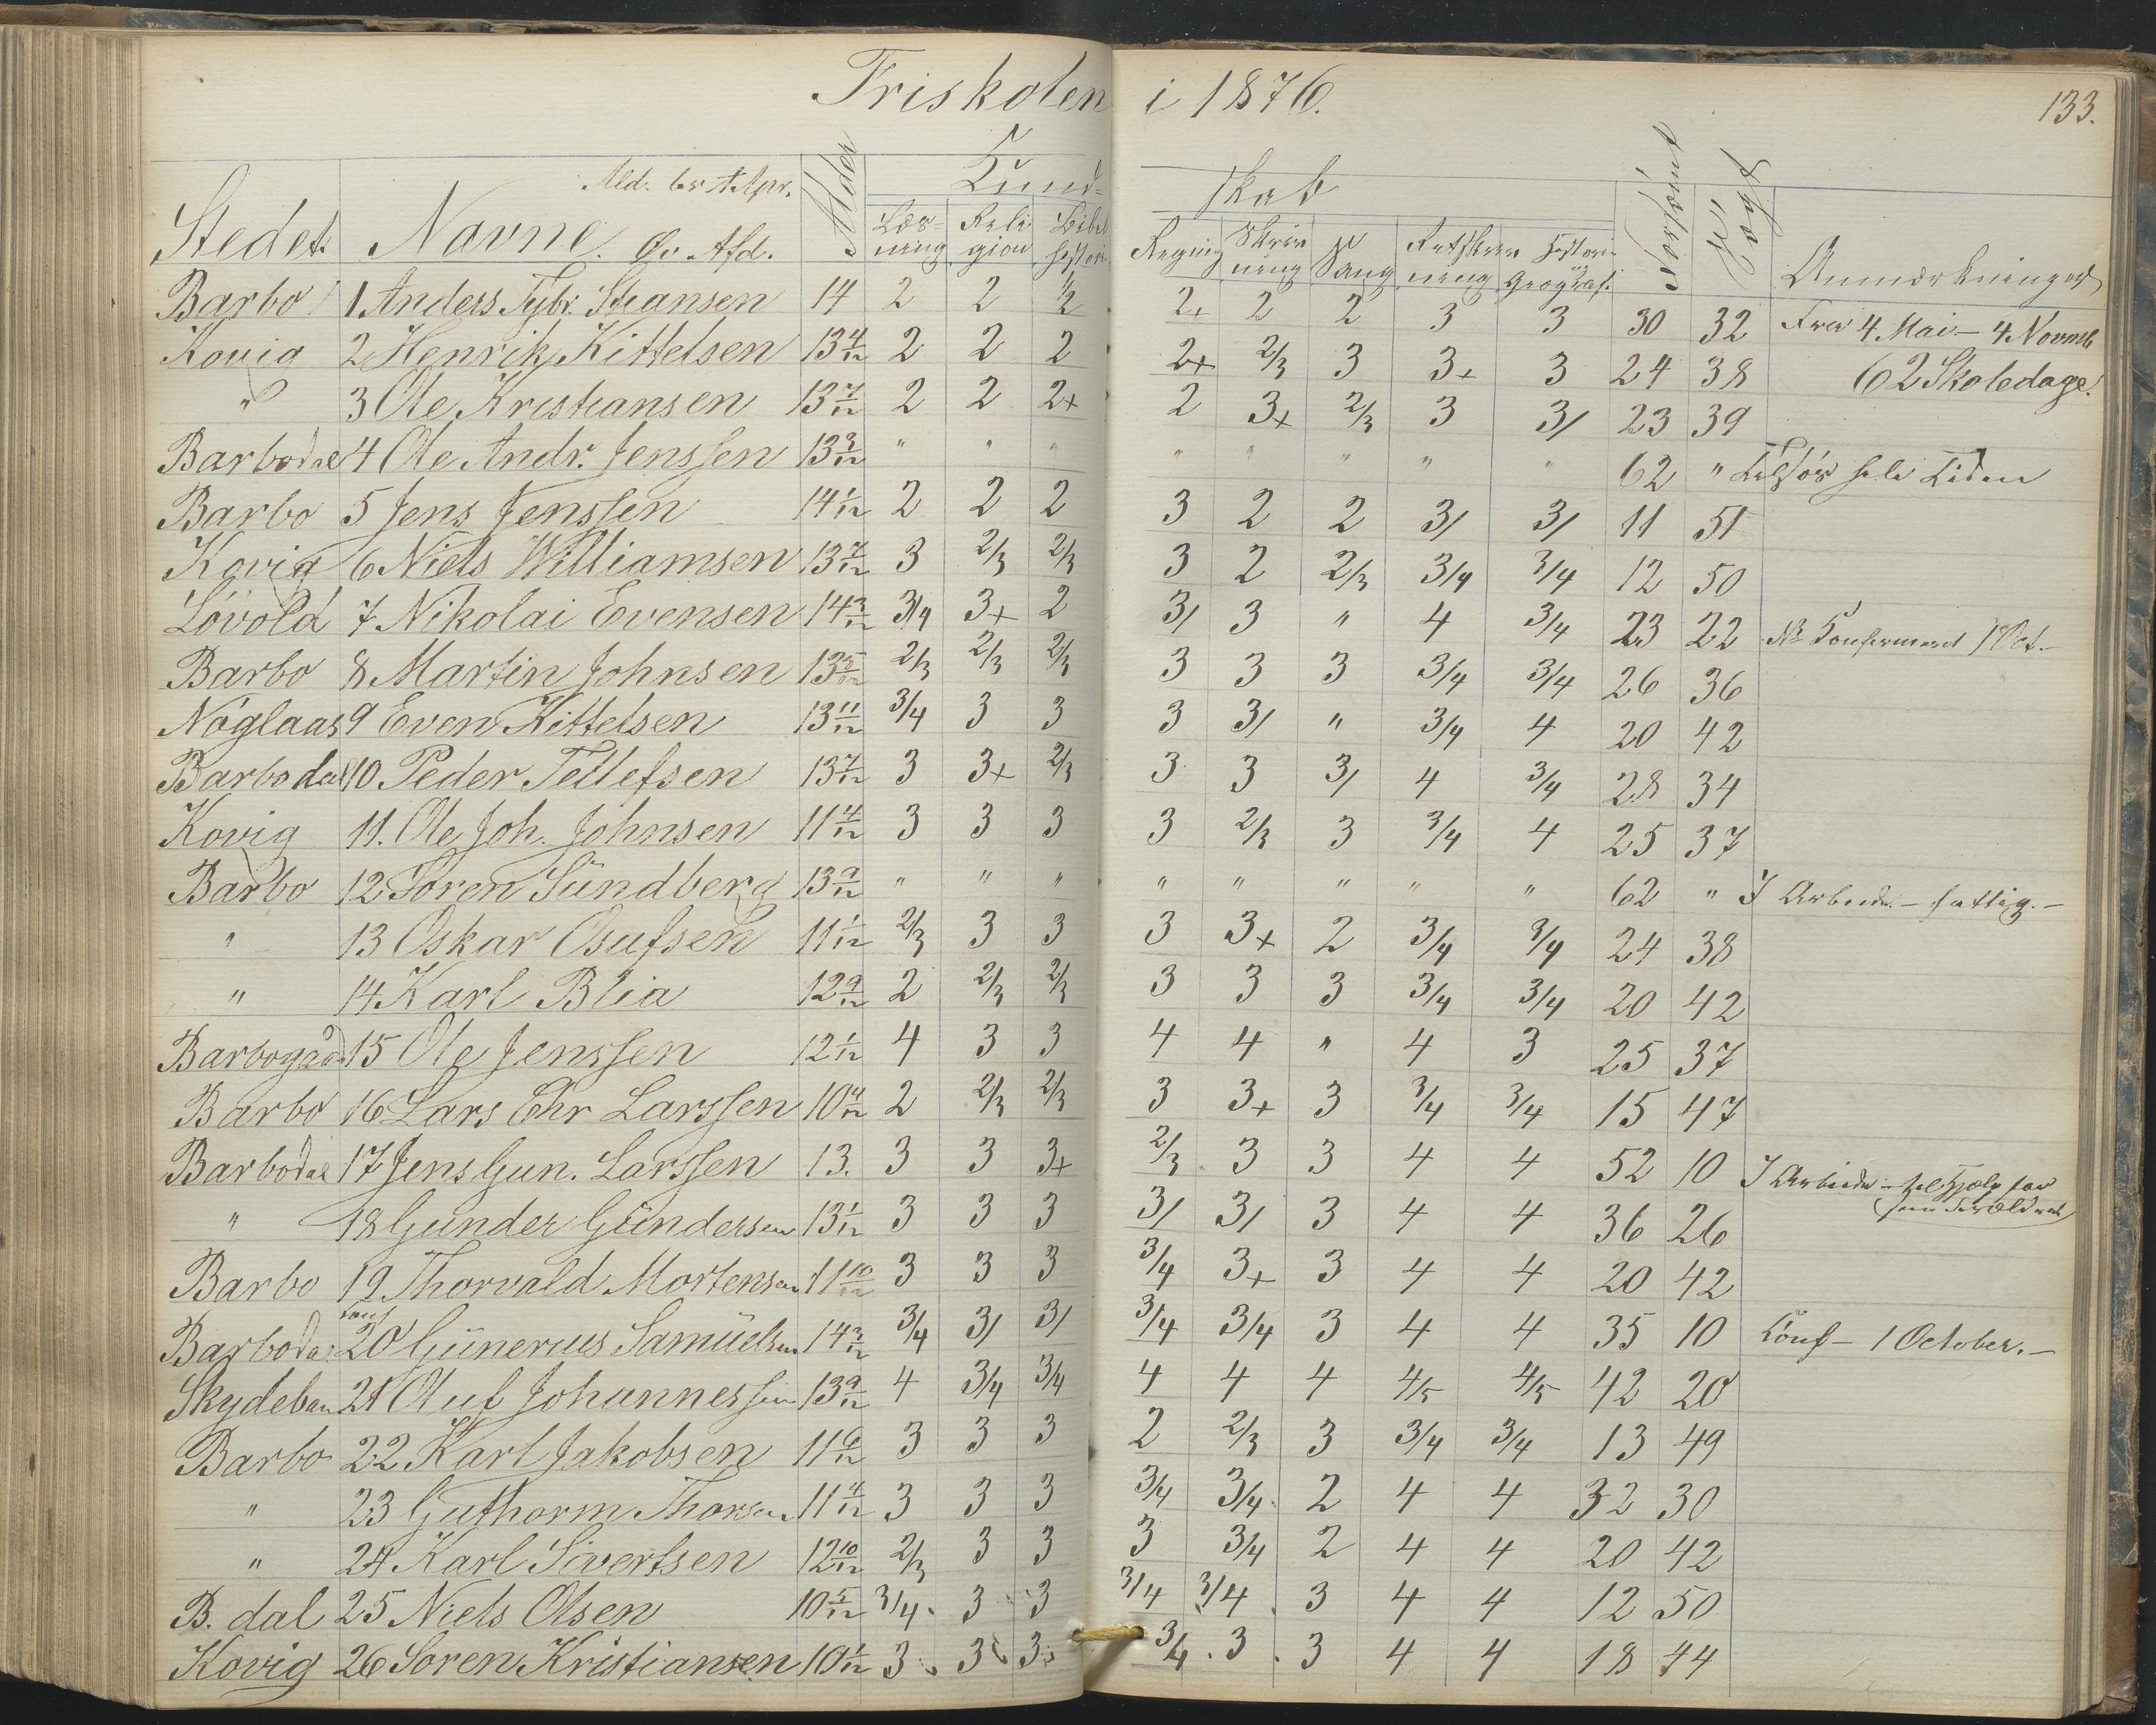 Friskolen i 1876.
133.
Stedet. Navne. Öv. Afd. Alder Kund- skab Forsömt Sögt Anmærkninger
Læs- ning Reli gion Bibel histori Regning Skriv ning Sang Retskriv ning Histori og Geografi
Barbo 1 Anders Stiansen 14 2 2 1/2 2+ 2 2 3 3 30 32 Fra 4. Mai - 4. Novemb
Kovig 2 Henrik Kittelsen 13 4/12 2 2 2 2+ 2/3 3 3+ 3 24 38 62 Skoledage.
" 3 Ole Kristiansen 13 7/12 2 2 2+ 2 3+ 2/3 3 3/ 23 39
Barbodal 4 Ole Andr. Jenssen 13 3/12 " " " " " " " " 62 " Tilsös hele Tiden
Barbo 5 Jens Jenssen 14 1/12 2 2 2 3 2 2 3/ 3/ 11 51
Kovig 6 Niels Williamsen 13 7/12 3 2/3 2/3 3 2 2/3 3/4 3/4 12 50
Lövold 7 Nikolai Evensen 14 3/12 3/4 3+ 2 3/ 3 " 4 3/4 23 22 Konfirmeret 1 Oct.-
Barbo 8 Martin Johnsen 13 5/12 2/3 2/3 2/3 3 3 3 3/4 3/4 26 36
Nöglaas 9 Even Kittelsen 13 11/12 3/4 3 3 3 3/ " 3/4 4 20 42
Barbodal 10 Peder Tellefsen 13 7/12 3 3+ 2/3 3 3 3/ 4 3/4 28 34
Kovig 11. Ole Joh. Johnsen 11 4/12 3 3 3 3 2/3 3 3/4 4 25 37
Barbo 12 Sören Sündberg 13 9/12 " " " " " " " " 62 " I Arbeide - fattig. -
" 13 Oskar Osufsen 11 1/12 2/3 3 3 3 3+ 2 3/4 3/4 24 38
" 14 Karl Blia 12 9/12 2 2/3 2/3 3 3 3 3/4 3/4 20 42
Barbogaard 15 Ole Jenssen 12 1/12 4 3 3 4 4 " 4 3 25 37
Barbo 16 Lars Chr Larssen 10 4/12 2 2/3 2/3 3 3+ 3 3/4 3/4 15 47
Barbodal 17 Jens Gun. Larssen 13. 3 3 3+ 2/3 3 3 4 4 52 10 I Arbeide - til Hjælp for
sine Forældre
" 18 Gunder Gündersen 13 1/12 3 3 3 3/ 3/ 3 4 4 36 26
Barbo 19 Thorvald Mortensen 11 10/12 3 3 3 3/4 3+ 3 4 4 20 42
Konf
Barbodal 20 Günerius Samüelsen 14 3/12 3/4 3/ 3/ 3/4 3/4 3 4 4 35 10 Konf - 1 October. -
Skydeban 21 Oluf Johannessen 13 9/12 4 3/4 3/4 4 4 4 4/5 4/5 42 20
Barbo 22 Karl Jakobsen 11 6/12 3 3 3 2 2/3 3 3/4 3/4 13 49
" 23 Guthorm Thorsen 11 4/12 3 3 3 3/4 3/4 2 4 4 32 30
" 24 Karl Sivertsen 12 10/12 2/3 3 3 3 3/4 2 4 4 20 42
B. dal 25 Niels Olsen 10 5/12 3/4 3 3 3/4 3/4 3 4 4 12 50
Kovig 26 Sören Kristiansen 10 1/12 3 3 3 3/4 3 3 4 4 18 44